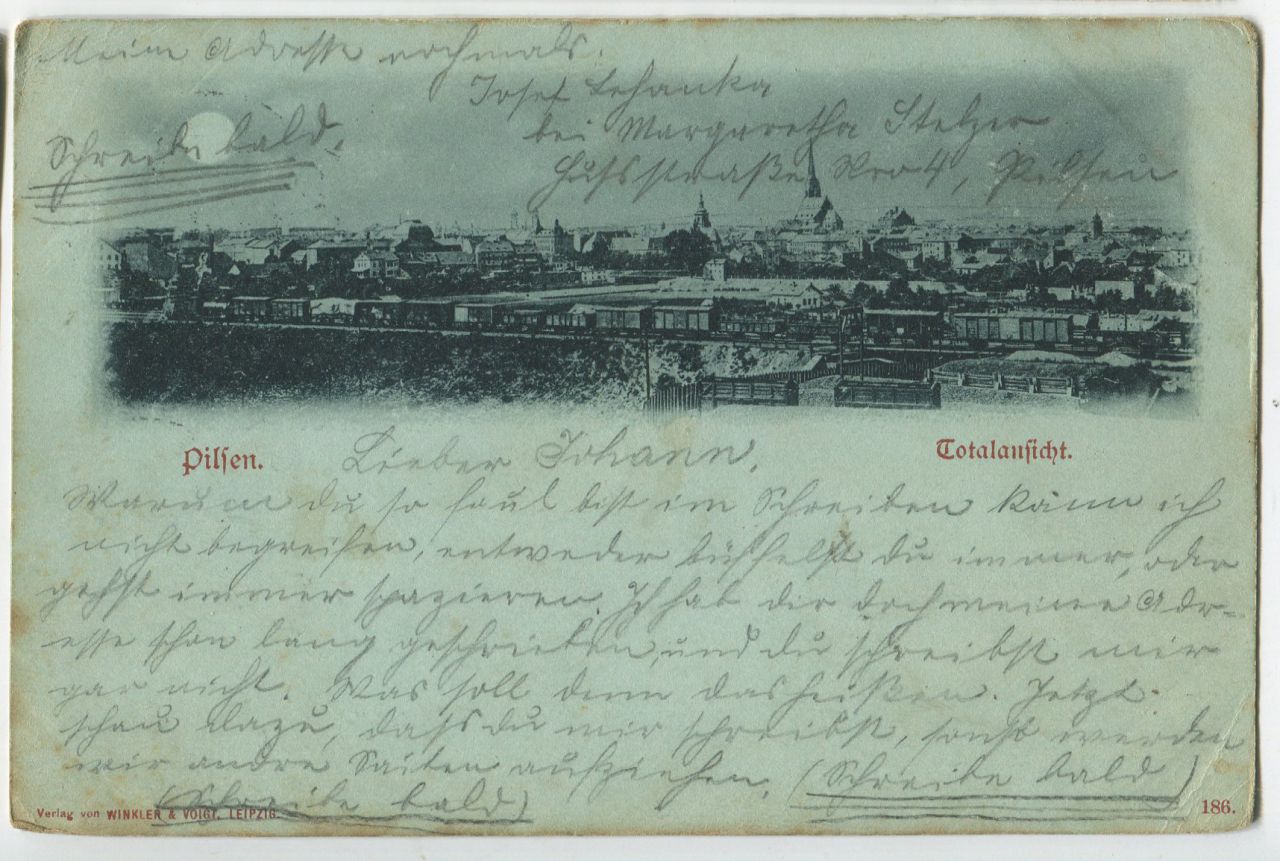 Mein Adresse nochmals.
Josef Lehanka
bei Margaretha Stelzer
Hussstraße Nro 4, Pilsen
Schreibe bald.
Pilsen.
Totalansicht.
Lieber Johann,
Warum du so faul bist im Schreiben kann ich
nicht begreifen, entweder büffelst du immer, oder
gehst immer spazieren. Ich hab dir doch meine Adr-
esse schon lang geschrieben, und du schreibst mir
gar nicht. Was soll denn das heißen. Jetzt
schau dazu, dass du mir schreibst, sonst werden
wir andre Saiten aufziehen. (Schreibe bald)
(Schreibe bald)
Verlag von WINKLER & VOIGT, LEIPZIG.
186.